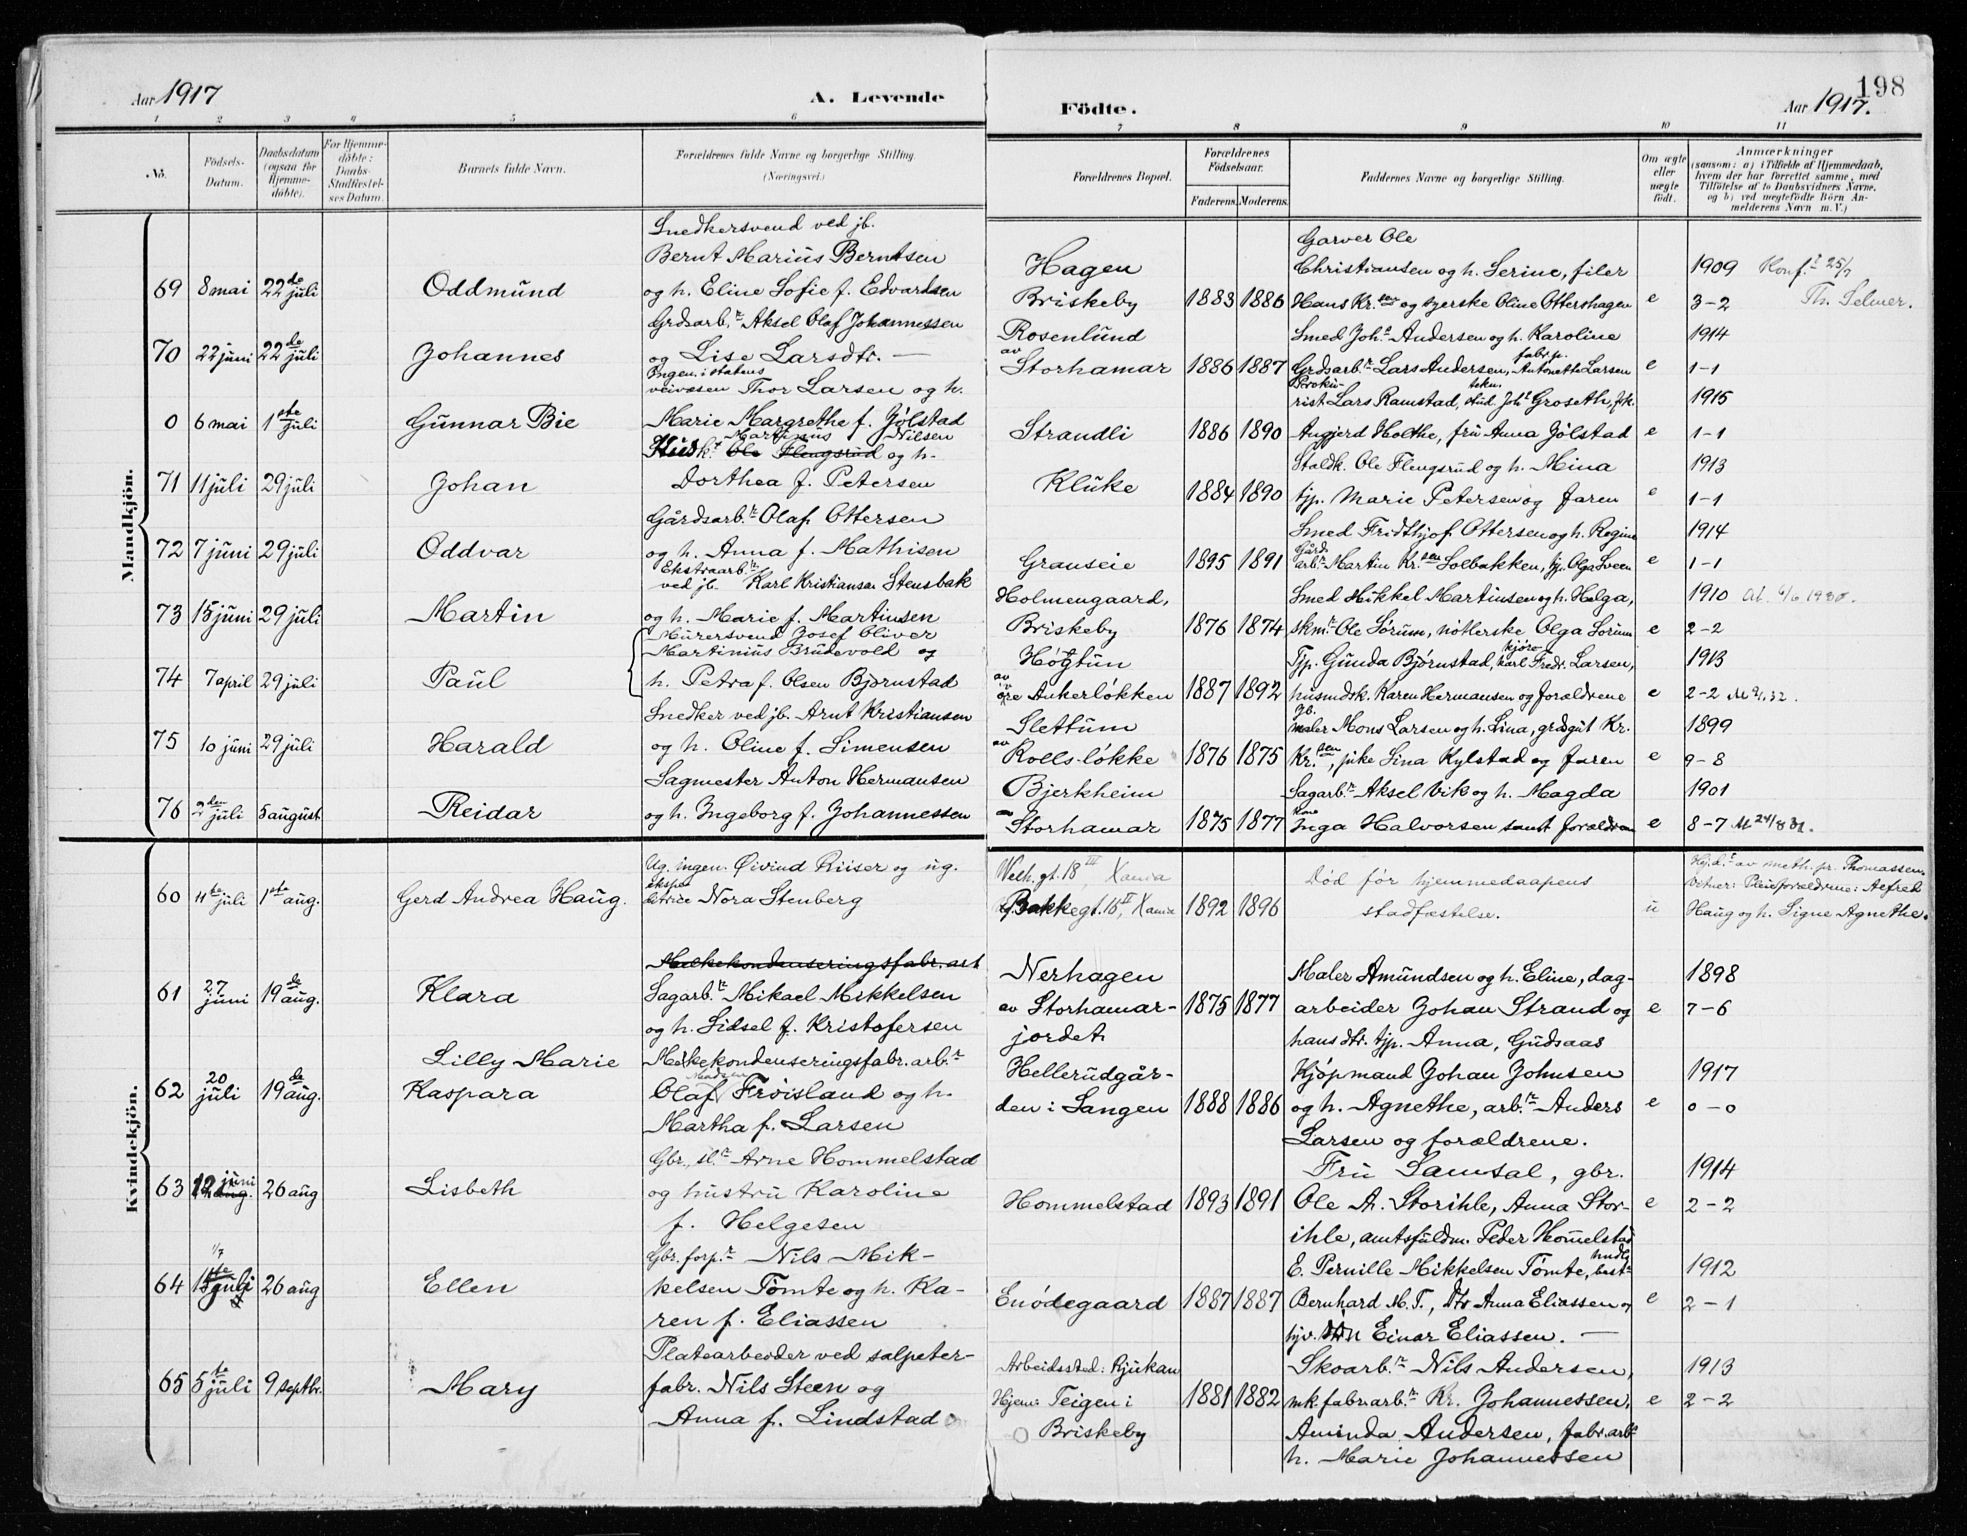 Aar 1917
A. Levende
Födte.
Aar 1917.
198
1 2 3 4 5 6 7 8 9 10 11
No.
Födsels-Datum.
Daabsdatum (ogsaa for Hjemme-döbte).
For Hjemme-döbte: Daabs-Stadfæstel-ses Datum.
Barnets fulde Navn.
Forældrenes fulde Navne og borgerlige Stilling.
(Næringsvei.)
Forældrenes Bopæl.
Forældrenes Födselsaar.
Faderens. Moderens.
Faddernes Navne og borgerlige Stilling.
Om ægte eller uægte født.
Anmærkninger
(saasom: a) i Tilfælde af Hjemmedaab, hvem der har forrettet samme, med Tilföielse af to Daabsvidners Navne, og b) ved uegtefödte Börn An-melderens Navn m. V.)
Mandkjön.
Snedkersvend ved jb.
Bernt Marius Berntsen
Hagen
Garver Ole
Christiansen og h. Serine, filer
1909 Konf. 25/7
69 8 mai 22de juli Oddmund og h. Eline Sofie f. Edvardsen Briskeby 1883 1886 Hans Kr.sen og syerske Oline Ottershagen e 3-2 Th. Selmer.
Grdsarb.r Aksel Olaf Johannessen Rosenlund Smed Joh.s Andersen og h. Karoline 1914
70 22 juni 22de juli Johannes og Lise Larsdtr. — av Storhamar 1886 1887 Grdsarb.r Lars Andersen, fabr.p. Antonette Larsen e 1-1
Ingen. i statens
veivæsen Thor Larsen og h. Prokurist Lars Ramstad, stud. tekn. Joh.s Groseth, frk. 1915
0 6 mai 1ste juli Gunnar Bie Marie Margrethe f. Jølstad Strandli 1886 1890 Angjerd Holthe, fru Anna Jølstad e 1-1
Husk. Martinus Nilsen Ole Flengsrud og h. Staldk. Ole Flengsrud og h. Mina 1913
71 11 juli 29 juli Johan Dorthea f. Petersen Kluke 1884 1890 tjp. Marie Petersen og faren e 1-1
Gårdsarb.r Olaf Ottersen Smed Fridthjof Ottersen og h. Regine 1914
72 7 juni 29 juli Oddvar og h. Anna f. Mathisen Granseie 1895 1891 Gårdarb. Martin Kr.sen Solbakken, tj. Olga Sveen e 1-1
Ekstraarb.r
ved jb. Karl Kristiansen Stensbak Holmengaard, Smed Mikkel Martinsen og h. Helga, 1910
73 15 juni 29 juli Martin og h. Marie f. Martinsen Briskeby 1876 1874 skm.r Ole Sørum, Olga Sorum e 2-2
Murersvend Josef Oliver
Martinius Brudevold og Høgtun Tjp. Gunda Bjørnstad, kjøre Karl Fredr. Larsen, 1913
74 7 april 29 juli Paul h. Petra f. Olsen Bjørnstad av øvre Ankerløkken 1887 1892 husmdsk. Karen Hermansen og forældrene e 2-2
Snedker ved jb. Arnt Kristiansen Slettum Jb. maler Mons Larsen og h. Lina, grdsgut Kr. 1899
75 10 juni 29 juli Harald og h. Oline f. Simensen av Rolls-løkke 1876 1875 Kr.sen, pike Lina Kylstad og faren e 9-8
Sagmester Anton Hermansen Bjerkheim Sagarb.r Aksel Vik og h. Magda 1901
76 2den juli 5 august Reidar og h. Ingeborg f. Johannessen av Storhamar 1875 1877 kone Inga Halvorsen samt forældrene e 8-7 M 24/8 31.
Kvindekjön.
Ug. ingen. Øivind Riiser og ug. Welh. gt. 18 III, Xania Død før hjemmedaapens Hj.d. av meth. pr. Thomassen.
60 11te juli 1ste aug. Gerd Andrea Haug. ekspeditrice Nora Stenberg Bakkegt. 15 II, Xania 1892 1896 stadfæstelse. u Vitner: Pleieforældrene: Alfred Haug og h. Signe Agnethe.
Melkekondenseringsfabr. arb. Nerhagen Maler Amundsen og h. Eline, dag- 1898
61 27 juni 19de aug. Klara Sagarb.r Mikael Mikkelsen av Storhamar- 1875 1877 arbeider Johan Strand og e 7-6
og h. Sidsel f. Kristofersen jordet hans dtr. tjp. Anna, Gudsaas
Lilly Marie Melkekondenseringsfabr. arb.r Hellerudgår- Kjøpmand Johan Johnsen 1917
62 20 juli 19de aug. Kaspara Olaf Frøisland og h. den i Sangen 1888 1886 og h. Agnethe, arb.r Anders e 0-0
Martha f. Larsen Larsen og forældrene.
Gbr. Arne Hommelstad Fru Samsal, gbr. 1914
63 12 juni 26 aug Lisbeth og hustru Karoline Hommelstad 1893 1891 Ole A. Storihle, Anna Stor- e 2-2
f. Helgesen ihle, amtsfuldm. Peder Hommelstad
Gbr. forp.r Nils Mik- E. Pernille Mikkelsen Tømte, 1912
64 1ste juli 1/7 26 aug Ellen kelsen Tømte og h. Ka- Enødegaard 1887 1887 Bernhard M. T., Anna Eliassen og e 2-1
ren f. Eliassen Einar Eliassen. —
Platearbeider ved salpeter- Arbeidssted: Rjukan Skoarb.r Nils Andersen, 1913
65 5te juli 9 septbr. Mary fabr. Nils Steen og Hjem: Teigen i 1881 1882 mk. fabr. arb.r Kr. Johannessen, e 2-2
Anna f. Lindstad Briskeby Aminda Andersen, fabr. arb.
h. Marie Johannessen